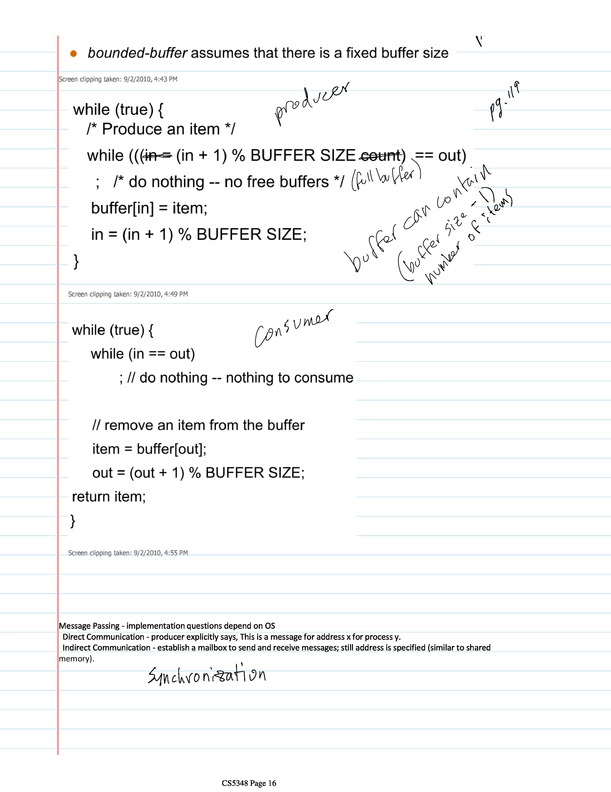 • bounded-buffer assumes that there is a fixed buffer size
Screen clipping taken: 9/2/2010, 4:43 PM
producer
pg. 119
while (true) {
/* Produce an item */
while (((in = (in + 1) % BUFFER SIZE count) == out)
; /* do nothing -- no free buffers */ (full buffer)
buffer[in] = item;
in = (in + 1) % BUFFER SIZE;
}
buffer can contain
(buffer size - 1)
number of items
Screen clipping taken: 9/2/2010, 4:49 PM
Consumer
while (true) {
while (in == out)
; // do nothing -- nothing to consume
// remove an item from the buffer
item = buffer[out];
out = (out + 1) % BUFFER SIZE;
return item;
}
Screen clipping taken: 9/2/2010, 4:55 PM
Message Passing - implementation questions depend on OS
Direct Communication - producer explicitly says, This is a message for address x for process y.
Indirect Communication - establish a mailbox to send and receive messages; still address is specified (similar to shared
memory).
Synchronization
CS5348 Page 16